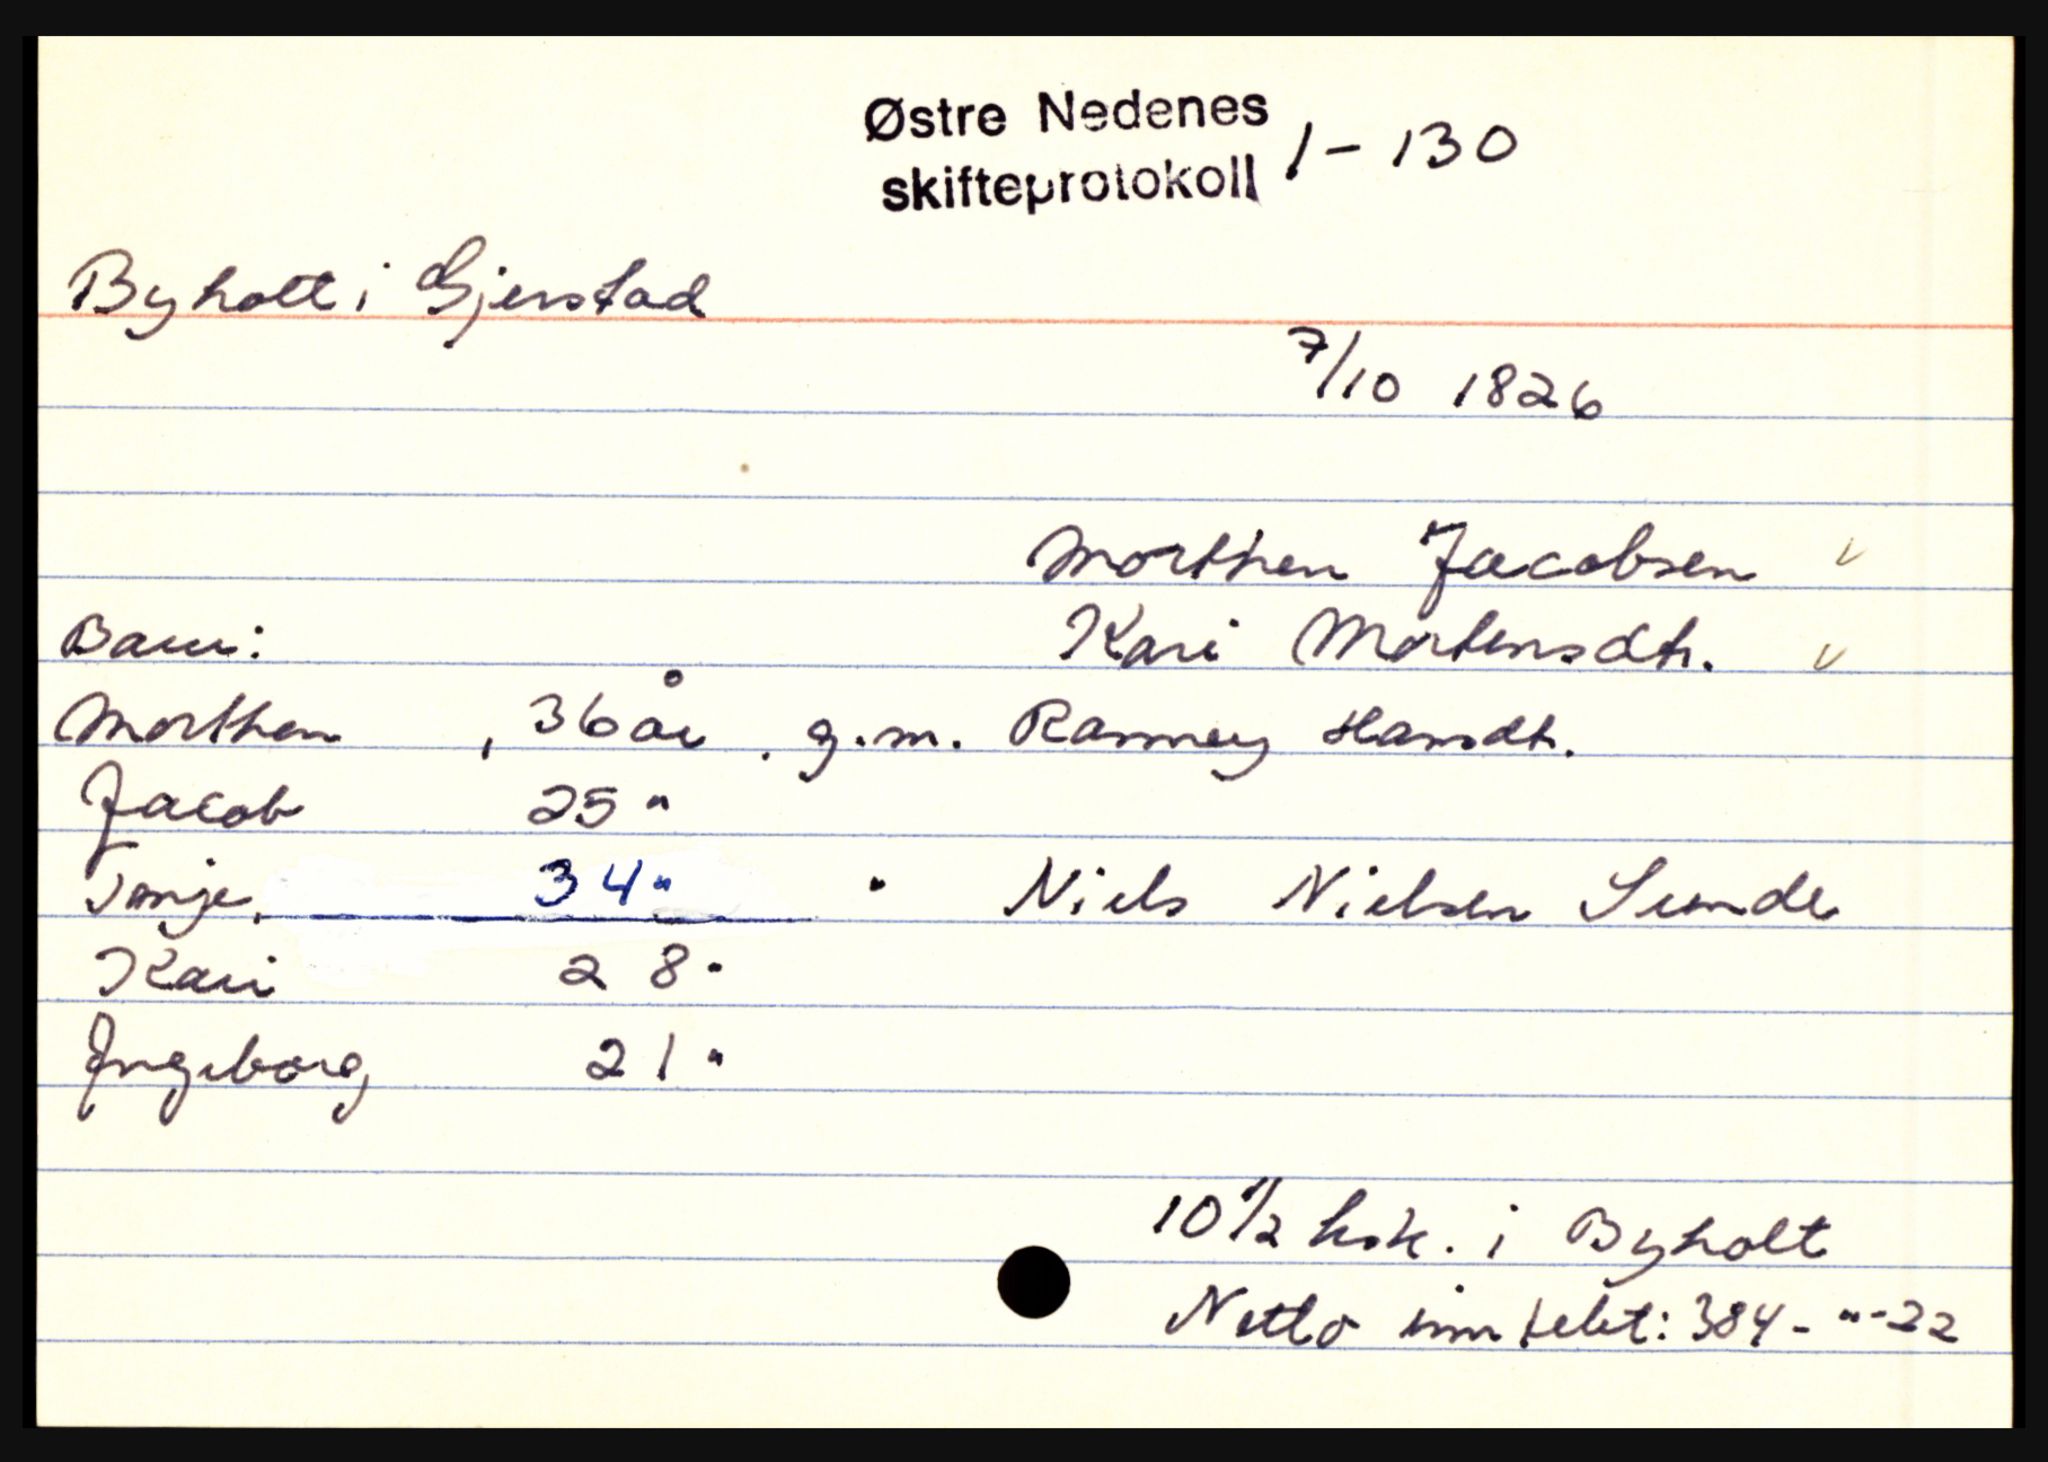 Østre Nedenes
skifteprotokoll 1 - 130
Byholt i Gjerstad
7/10 1826
Morthen Jacobsen v
Barn: Kari Mortensdtr. v
Morthen , 36 år , g.m. Ranney Hansdtr.
Jacob 25 "
Tonje, 34 " " Niels Nielsen Sunde
Kari 28 "
Ingeborg 21 "
10 1/2 hsk. i Byholt
Netto inntekt: 384 - " - 22